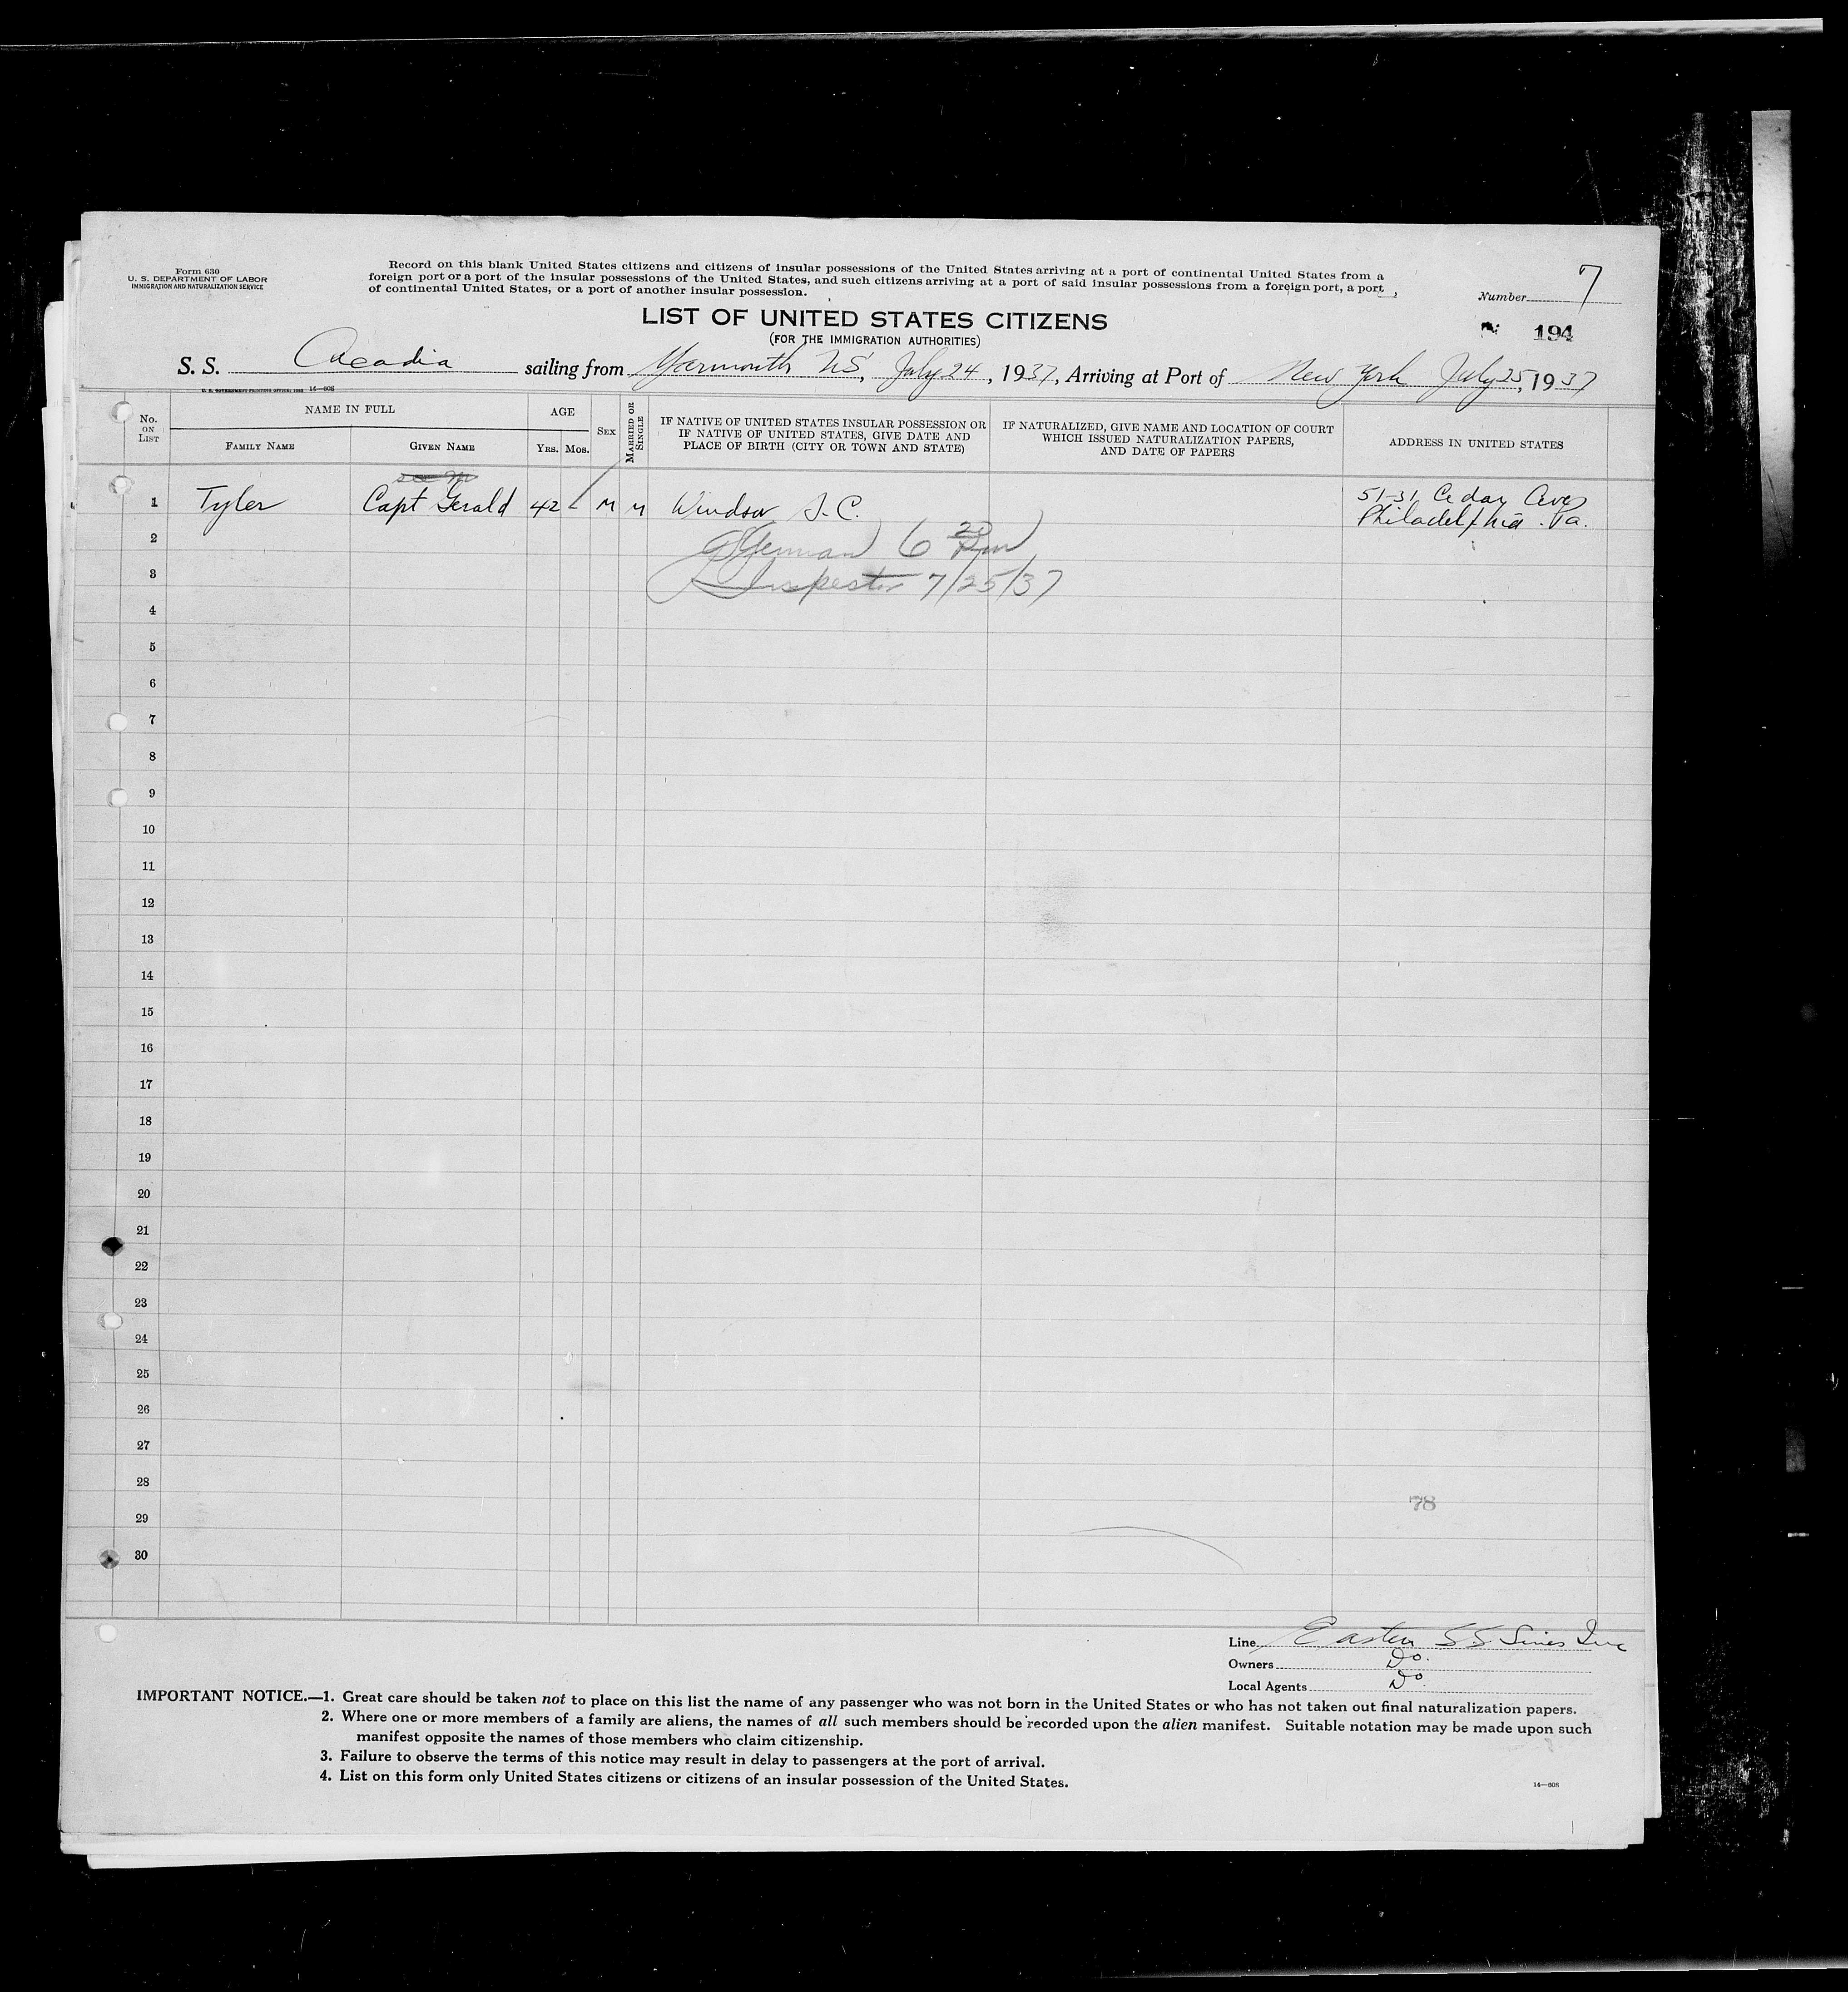 Form 630
U. S. DEPARTMENT OF LABOR
IMMIGRATION AND NATURALIZATION SERVICE
Record on this blank United States citizens and citizens of insular possessions of the United States arriving at a port of continental United States from a
foreign port or a port of the insular possessions of the United States, and such citizens arriving at a port of said insular possessions from a foreign port, a port
of continental United States, or a port of another insular possession.
Number 7
194
LIST OF UNITED STATES CITIZENS
(FOR THE IMMIGRATION AUTHORITIES)
S. S. Acadia sailing from Yarmouth NS, July 24, 1937, Arriving at Port of New York July 25, 1937
U. S. GOVERNMENT PRINTING OFFICE: 14—608
No. ON LIST
NAME IN FULL
FAMILY NAME
GIVEN NAME
AGE
YRS. MOS.
SEX
MARRIED OR SINGLE
IF NATIVE OF UNITED STATES INSULAR POSSESSION OR
IF NATIVE OF UNITED STATES, GIVE DATE AND
PLACE OF BIRTH (CITY OR TOWN AND STATE)
IF NATURALIZED, GIVE NAME AND LOCATION OF COURT
WHICH ISSUED NATURALIZATION PAPERS,
AND DATE OF PAPERS
ADDRESS IN UNITED STATES
1 Tyler Capt Gerald 42 M M Windsor S.C. 51-31 Cedar Ave
Philadelphia Pa.
2 6 20 Pm
3 Inspector 7/25/37
4
5
6
7
8
9
10
11
12
13
14
15
16
17
18
19
20
21
22
23
24
25
26
27
28
78
29
30
Line Eastern SS Lines Inc
Owners Do.
Local Agents Do.
IMPORTANT NOTICE.—1. Great care should be taken not to place on this list the name of any passenger who was not born in the United States or who has not taken out final naturalization papers.
2. Where one or more members of a family are aliens, the names of all such members should be recorded upon the alien manifest. Suitable notation may be made upon such
manifest opposite the names of those members who claim citizenship.
3. Failure to observe the terms of this notice may result in delay to passengers at the port of arrival.
4. List on this form only United States citizens or citizens of an insular possession of the United States.
14—608